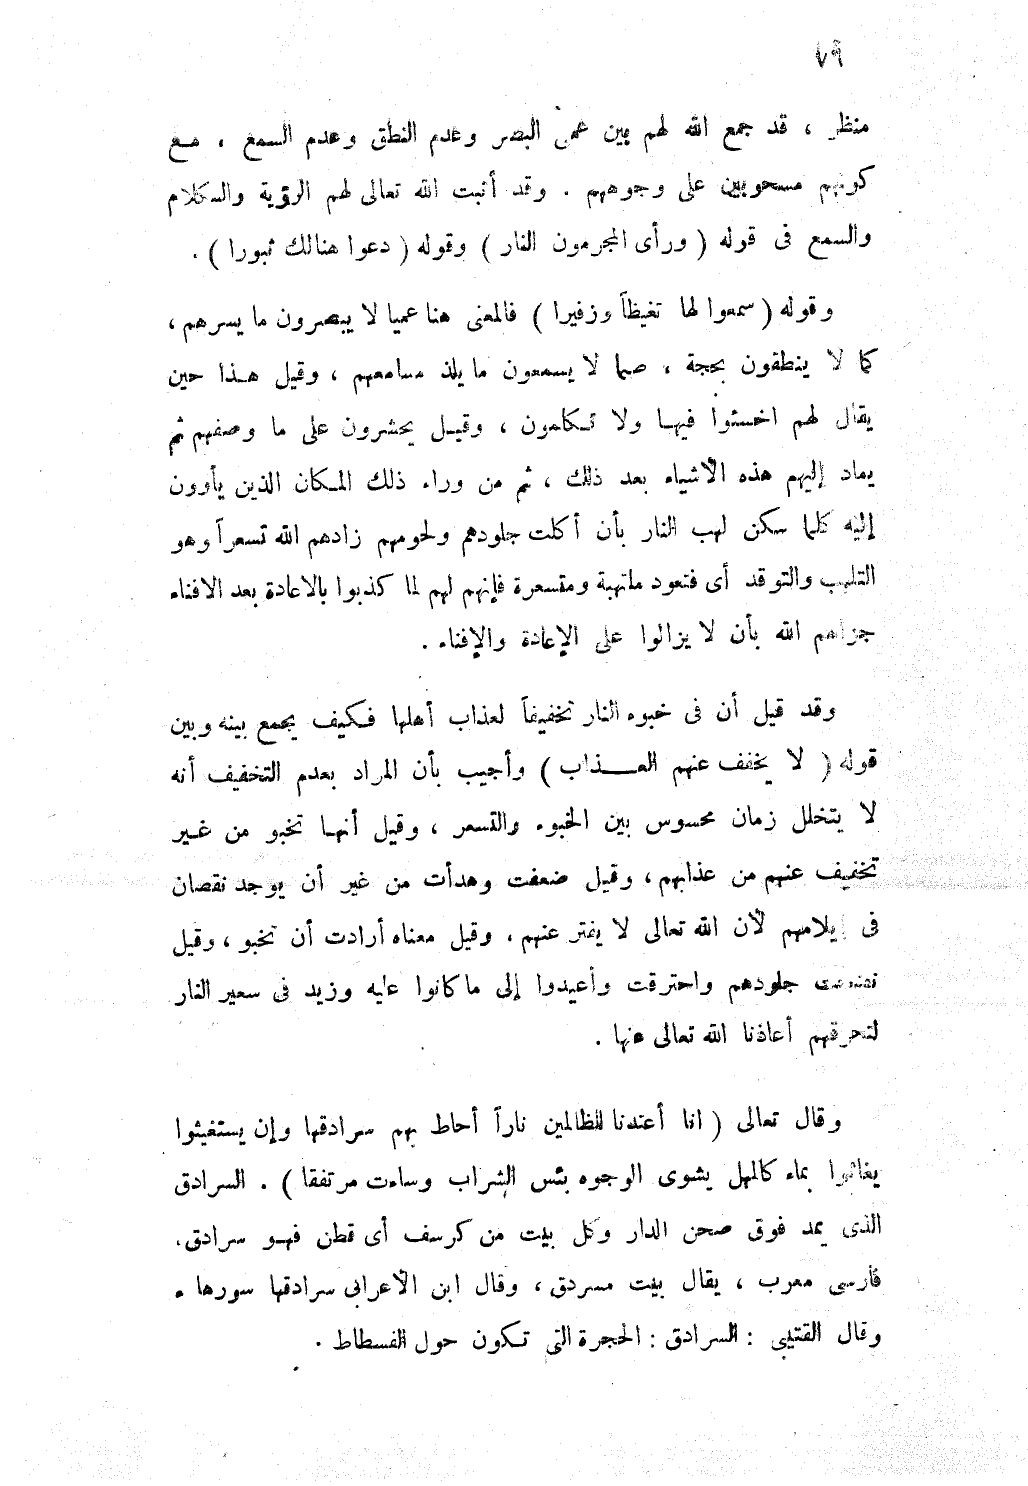 ٧٩
منظر ، قد جمع الله لهم بين عمى البصر وعدم النطق وعدم السمع ، مـع
كونهم مسحوبين على وجوههم . وقد أثبت الله تعالى لهم الرؤية والـكلام
والسمع فى قوله ( ورأى المجرمون النار ) وقوله ( دعوا هنالك ثبورا ) .
وقوله ( سمعوا لها تغيظاً وزفيرا ) فالمعنى هنا عميا لا يبصرون ما يسرهم ،
كما لا ينطقون بحجة ، صما لا يسمعون ما يلذ مسامعهم ، وقيل هـذا حين
يقال لهم اخسئوا فيهـا ولا تـكلمون ، وقيـل يحشرون على ما وصفهم ثم
يعاد إليهم هذه الأشياء بعد ذلك ، ثم من وراء ذلك المـكان الذين يأوون
إليه كلما سكن لهب النار بأن أكلت جلودهم ولحومهم زادهم الله تسعراً وهو
التلهب والتوقد أى فتعود ملتهبة ومتسعرة فإنهم لهم لما كذبوا بالاعادة بعد الافناء
جزاهم الله بأن لا يزالوا على الإعادة والإفناء .
وقد قيل أن فى خبوه النار تخفيفاً لعذاب أهلها فـكيف يجمع بينه وبين
قوله ( لا يخفف عنهم العــــذاب ) وأجيب بأن المراد بعدم التخفيف أنه
لا يتخلل زمان محسوس بين الخبوء والتسعر ، وقيل أنهـا تخبو من غـير
تخفيف عنهم من عذابهم ، وقيل ضعفت وهدأت من غير أن يوجد نقصان
فى إيلامهم لأن الله تعالى لا يفتر عنهم . وقيل معناه أرادت أن تخبو ، وقيل
نضجت جلودهم واحترقت وأعيدوا إلى ما كانوا عليه وزيد فى سعير النار
لتحرقهم أعاذنا الله تعالى منها .
وقال تعالى ( انا أعتدنا للظالمين ناراً أحاط بهم سرادقها وإن يستغيثوا
يغاثوا بماء كالمهل يشوى الوجوه بئس الشراب وساءت مرتفقا ) . السرادق
الذى يمد فوق صحن الدار وكل بيت من كرسف أى قطن فهـو سرادق ،
فارسى معرب ، يقال بيت مسردق ، وقال ابن الأعرابى سرادقها سورها .
وقال القتيبى : السرادق : الحجرة التى تـكون حول الفسطاط .